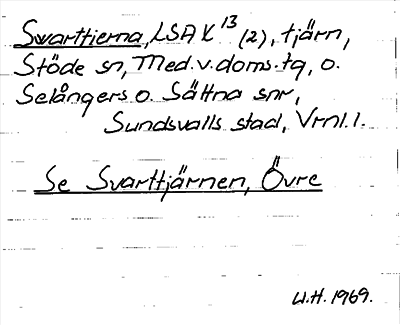 Swarttierna, LSA K 13 (2), tjärn,
Stöde sn, Med. v. doms. tg, o.
Selångers o. Sättna snr,
Sundsvalls stad, Vrnl. l.
Se Svarttjärnen, Övre
W.H. 1969.